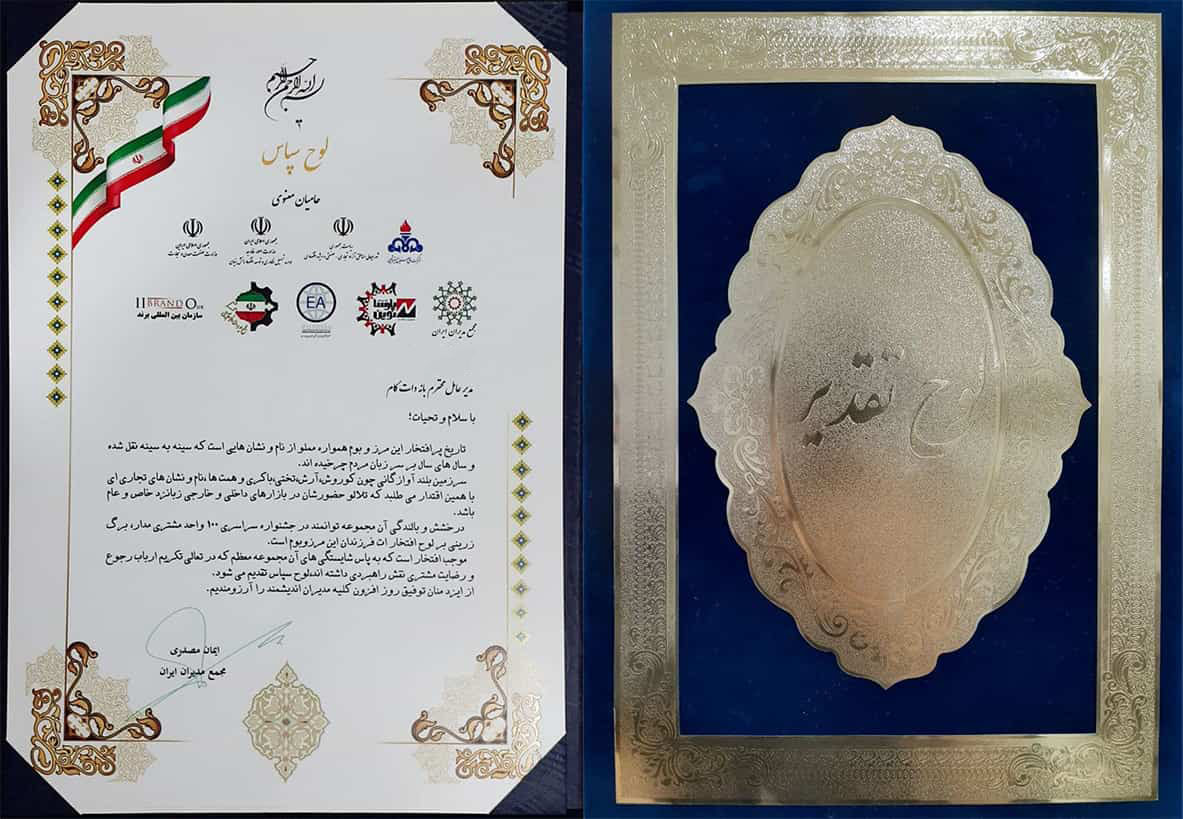 بسم الله الرحمن الرحیم
لوح سپاس
حامیان معنوی
جمهوری اسلامی ایران
وزارت صنعت، معدن و تجارت
جمهوری اسلامی ایران
ریاست جمهوری
IIBRAND Org
سازمان بین المللی برند
EA
بازتاب
نوین
مجمع مدیران ایران
مدیر عامل محترم بانه دات کام
با سلام و تحیات؛
تاریخ پرافتخار این مرز و بوم همواره مملو از نام و نشان هایی است که سینه به سینه نقل شده
و سال های سال بر سر زبان مردم چرخیده اند.
سرزمین بلند آوازگانی چون کوروش،آرش،تختی،باکری و همت ها،نام و نشان های تجاری ای
با همین اقتدار می طلبد که تلالو حضورشان در بازارهای داخلی و خارجی زبانزد خاص و عام
باشد.
درخشش و بالندگی آن مجموعه توانمند در جشنواره سراسری ۱۰۰ واحد مشتری مدار، برگ
زرینی بر لوح افتخار ات فرزندان این مرزوبوم است.
موجب افتخار است که به پاس شایستگی های آن مجموعه معظم که در تعالی تکریم ارباب رجوع
و رضایت مشتری نقش راهبردی داشته اند،لوح سپاس تقدیم می شود.
از ایزد منان توفیق روز افزون کلیه مدیران اندیشمند را آرزومندیم.
ایمان مصدری
مجمع مدیران ایران
لوح تقدیر